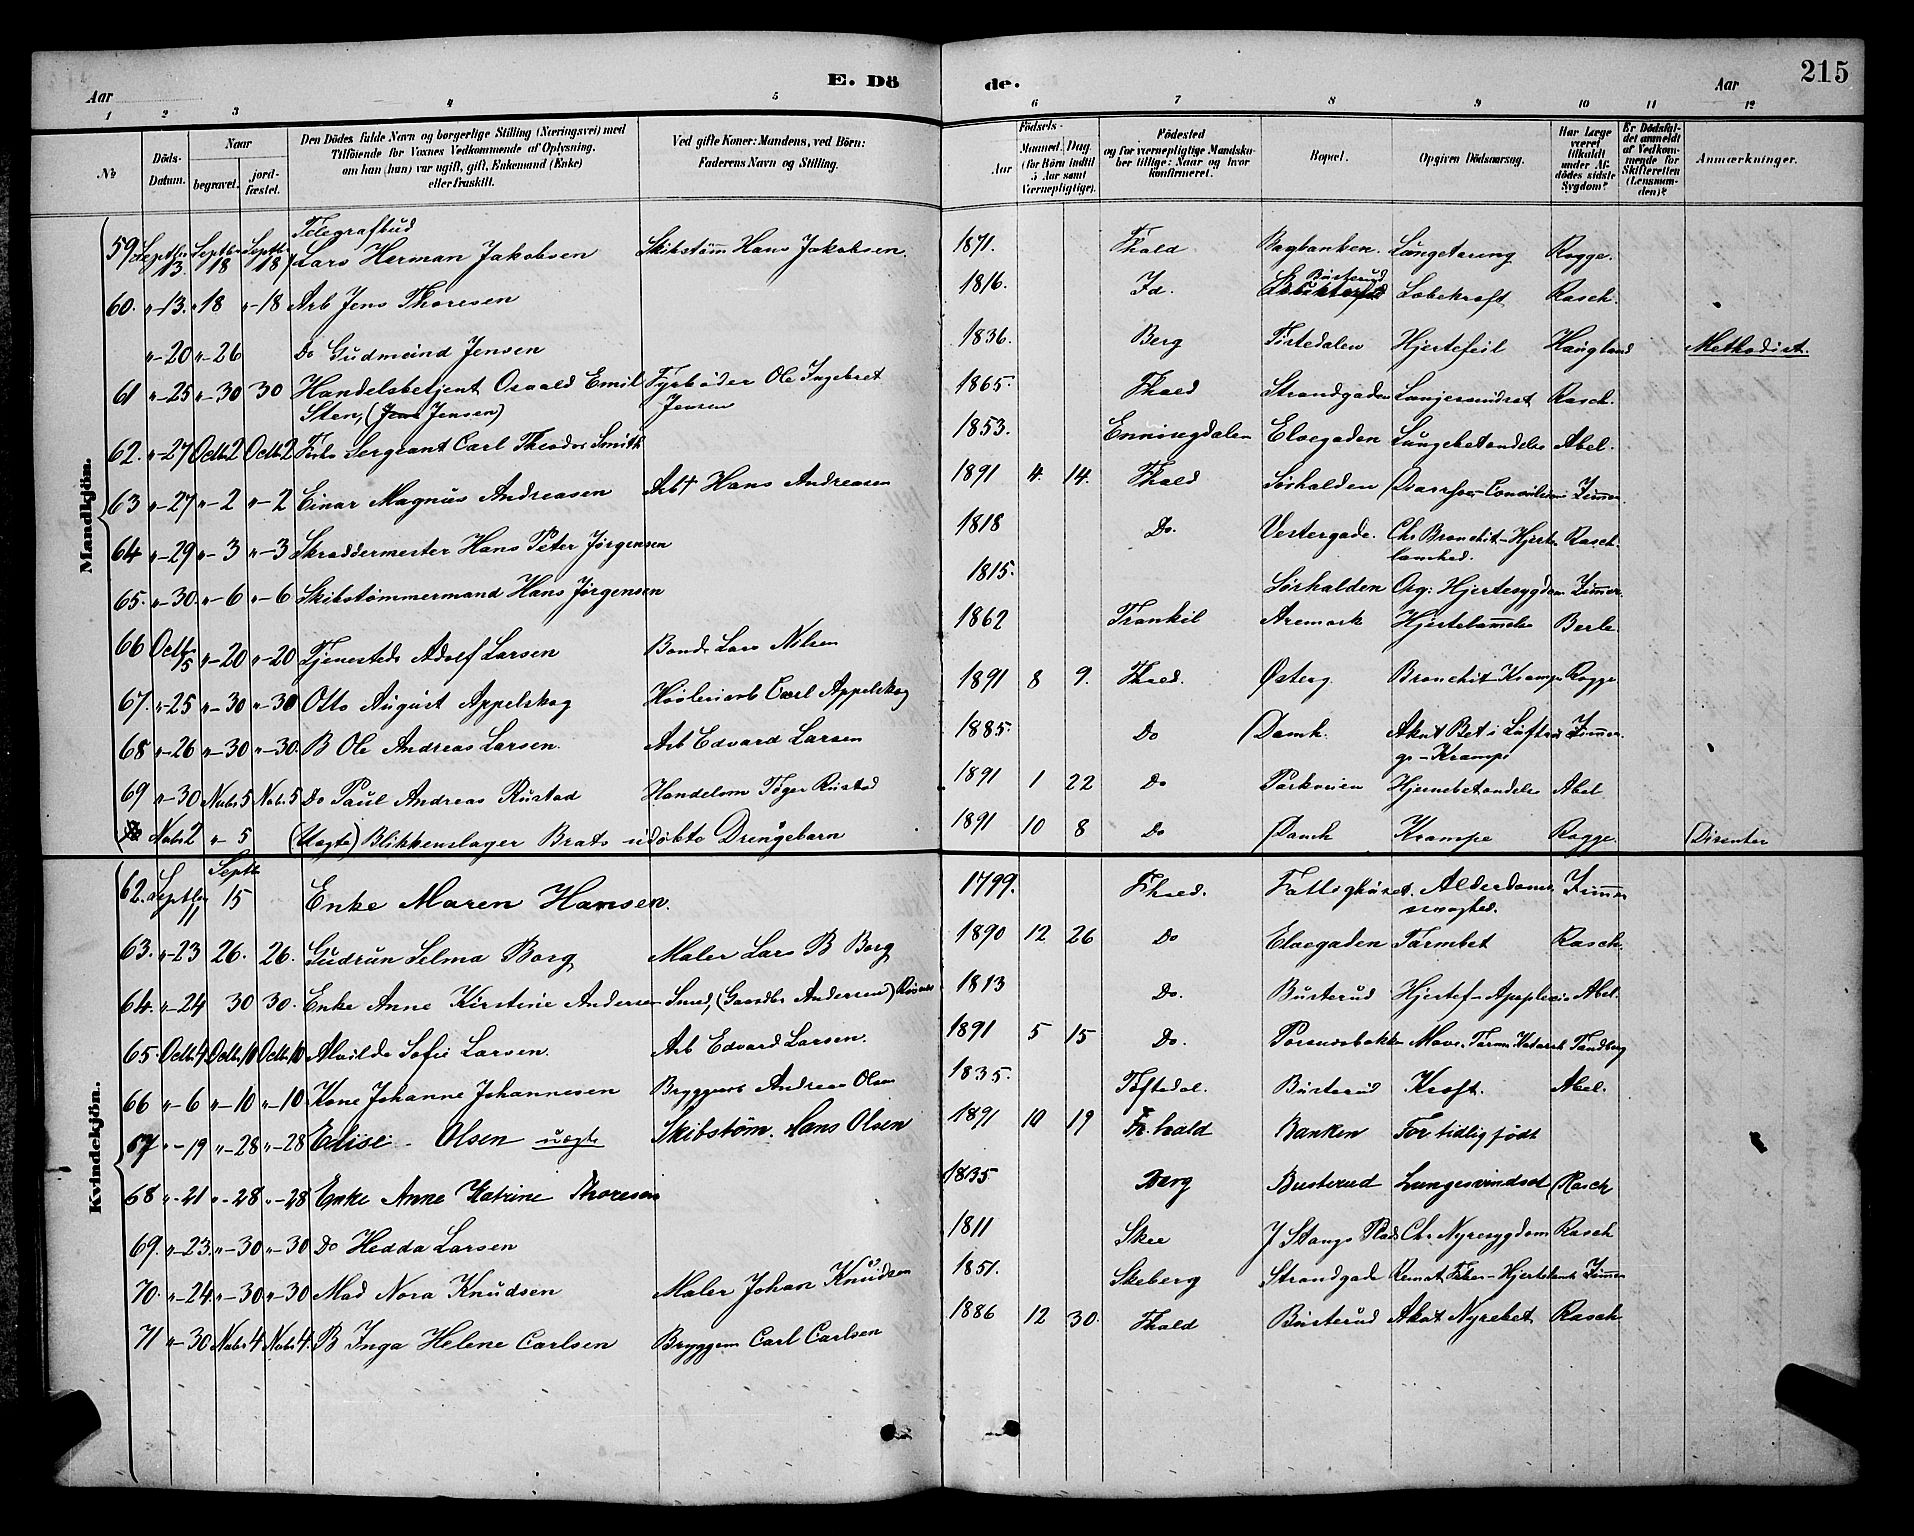 E. Dö de. 215
Aar Aar
1 2 3 4 5 6 7 8 9 10 11 12
No
Döds-Datum.
Naar
begravet.
jord-fæstet.
Den Dödes fulde Navn og borgerlige Stilling (Næringsvei) med
Tilföiende for Voxnes Vedkommende af Oplysning,
om han (hun) var ugift, gift, Enkemand (Enke)
eller fraskilt.
Ved gifte Koner: Mandens, ved Börn:
Faderens Navn og Stilling.
Födsels-
Aar
Maaned. Dag
(for Börn indtil
5 Aar samt
Værnepligtige).
Födested
og for værnepligtige Mandska-
ber tillige: Naar og hvor
konfirmeret.
Bopæl.
Opgiven Dödsaarsag.
Har Læge
været
tilkaldt
under Af-
dödes sidste
Sygdom?
Er Dödsfal-
det anmeldt
af Vedkom-
mende for
Skifteretten
(Lensman-
den)?
Anmærkninger.
Mandkjön.
Telegrafbud
59 Septbr 13 Septbr 18 Septbr 18 Lars Herman Jakobsen Skibstøm̄ Hans Jakobsen. 1871. Fhald Bagbanken. Lungetæring Rogge.
60. "-13. "18 "-18 Arb Jens Thoresen 1816. Id. Busterud Rasch.
"-20 "-26 Do Gudmund Jensen 1836. Berg Tistedalen Hjertefeil Haugland Methodist.
61 "-25 "-30 30 Handelsbetjent Osvald Emil Fyrbøder Ole Ingebret 1865. Fhald Strandgaden Rasch.
Sten, (Jens Jensen) Jensen
62. "-27 Octb 2 Octb 2 Sergeant Carl Theodor Smith 1853. Enningdalen Elvegaden Lungebetændelse Abel.
63 "-27 "-2 "-2 Einar Magnus Andreasen Arb Hans Andreasen 1891 4. 14. Fhald Sørhalden Zimmer.
64 "-29 "-3 "-3 Skreddermester Hans Peter Jørgensen 1818 Do. Vestergade. Chr Bronchit-Hjerte Rasch.
lamhed.
65. "-30. "-6 "-6 Skibstømmermand Hans Jørgensen 1815. Sørhalden Org: Hjertesygdom Zimmer.
66 Octb 5 "-20 "-20 Tjenestedr Adolf Larsen Bonde Lars Nilsen 1862 Trankil Aremark Hjertelam̄else Berle.
67. "-25 "-30 "-30 Otto August Appelskog Høvleriarb Carl Appelskog 1891 8 9. Fhald. Østerg. Bronchit-Krampe Rogge
68 "-26 "-30 "-30. B Ole Andreas Larsen. Arb Edvard Larsen 1885. Do Damh. Akut Bet i Luftrør Zimmer
ge-Krampe
69 "-30 Novb 5 Novb 5 Do Paul Andreas Rustad Handelsm Tøger Rustad 1891 1 22 Do Parkveien Hjernebetændelse Abel
Novb 2 "-5 (Uægte) Blikkenslager Brats udøbte Drengebarn 1891 10 8 Do Damh Krampe Rogge. Disenter
Kvindekjön.
62. Septbr 11 Septb 15 Enke Maren Hansen. 1799. Fhald. Fattighuset. Alderdoms Zimmer
svaghed.
63. "-23 26. 26. Gudrun Selma Borg Maler Lars B Borg 1890 12 26 Do Elvegaden Tarmbet Rasch.
64. "-24 30 30. Enke Anne Kirstine Andersen Smed, (Gaardbr Andersen) 1813 Do. Busterud Hjertef-Apoplexi Abel.
65. Octb 4 Octb 10 Octb 10 Alvilde Sofie Larsen. Arb Edvard Larsen. 1891 5 15 Do. Porsnesbakken Mave. Tarm. Katarrh Tandberg
66 "-6 "-10 "-10 Kone Johanne Johannesen Bryggearb Andreas Olsen 1835. Tøftedal. Busterud Kræft. Abel.
67 "-19 "-28 "-28 Elise Olsen uægte Skibstøm. Hans Olsen 1891 10 19 Fr.hald Banken For tidlig født
68 "-21 "-28 "-28 Enke Anne Katrine Thoresen 1835 Berg Busterud Lungesvindsot Rasch
69. "-23. "-30 "-30 Do Hedda Larsen 1811 Skee J Stangs Plads Chr Nyresygdom Rasch
70. "-24. "-30 "-30 Mad Nora Knudsen Maler Johan Knudsen 1851. Skeberg Strandgade Zimmer
71 "-30 Novb 4 Novb 4. B Inga Helene Carlsen Bryggem Carl Carlsen 1886 12 30. Fhald Busterud Akut Nyrebet Rasch